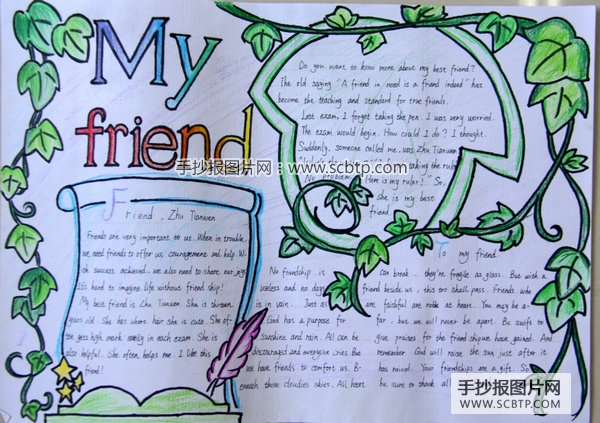 手抄报图片网
www.scbtp.com
My
friend
手抄报图片网:www.scbtp.com
Friend , Zhu Tianwen
Friends are very important to us. When in trouble,
we need friends to offer us couragement and help. With
success achieved, we also need to share our joys.
It's hard to imagine life without friend ship!
My best friend is Zhu Tianwen. She is thirteen
years old. She has short hair she is cute. She of-
ten gets high mark easily in each exam. She is
also helpful. She often helps me. I like this
friend!
Do you want to know more about my best friend?
The old saying "A friend in need is a friend indeed" has
become the teaching and standard for true friends.
Last exam, I forgot taking the pen. I was very worried.
The exam would begin. How could I do? I thought.
Suddenly, someone called me. was Zhu Tianwen
taking the ruler
No problem Here is my ruler!" So,
she is my best
friend.
To my friend
No friendship is
useless and no days
is in vain. Just as
God has a purpose for
sunshine and rain. All can be
discouraged and everyone cries. But
we have friends to comfort us. B-
eneath these cloudies skies. All heart
can break... they're fragile as glass. But with a
friend beside us, this too shall pass. Friends who
are faithful are noble at heart. You may be a-
far, but we will never be apart. Be swift to
give praises for the friendship we have gained. And
remember God will raise the sun just after it
has rained. Your friendships are a gift. So
be sure to thank all
手抄报图片网
WWW.SCBTP.COM